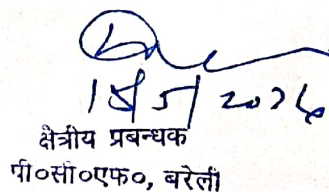 15/5/2026
क्षेत्रीय प्रबन्धक
पी०सी०एफ०, बरेली